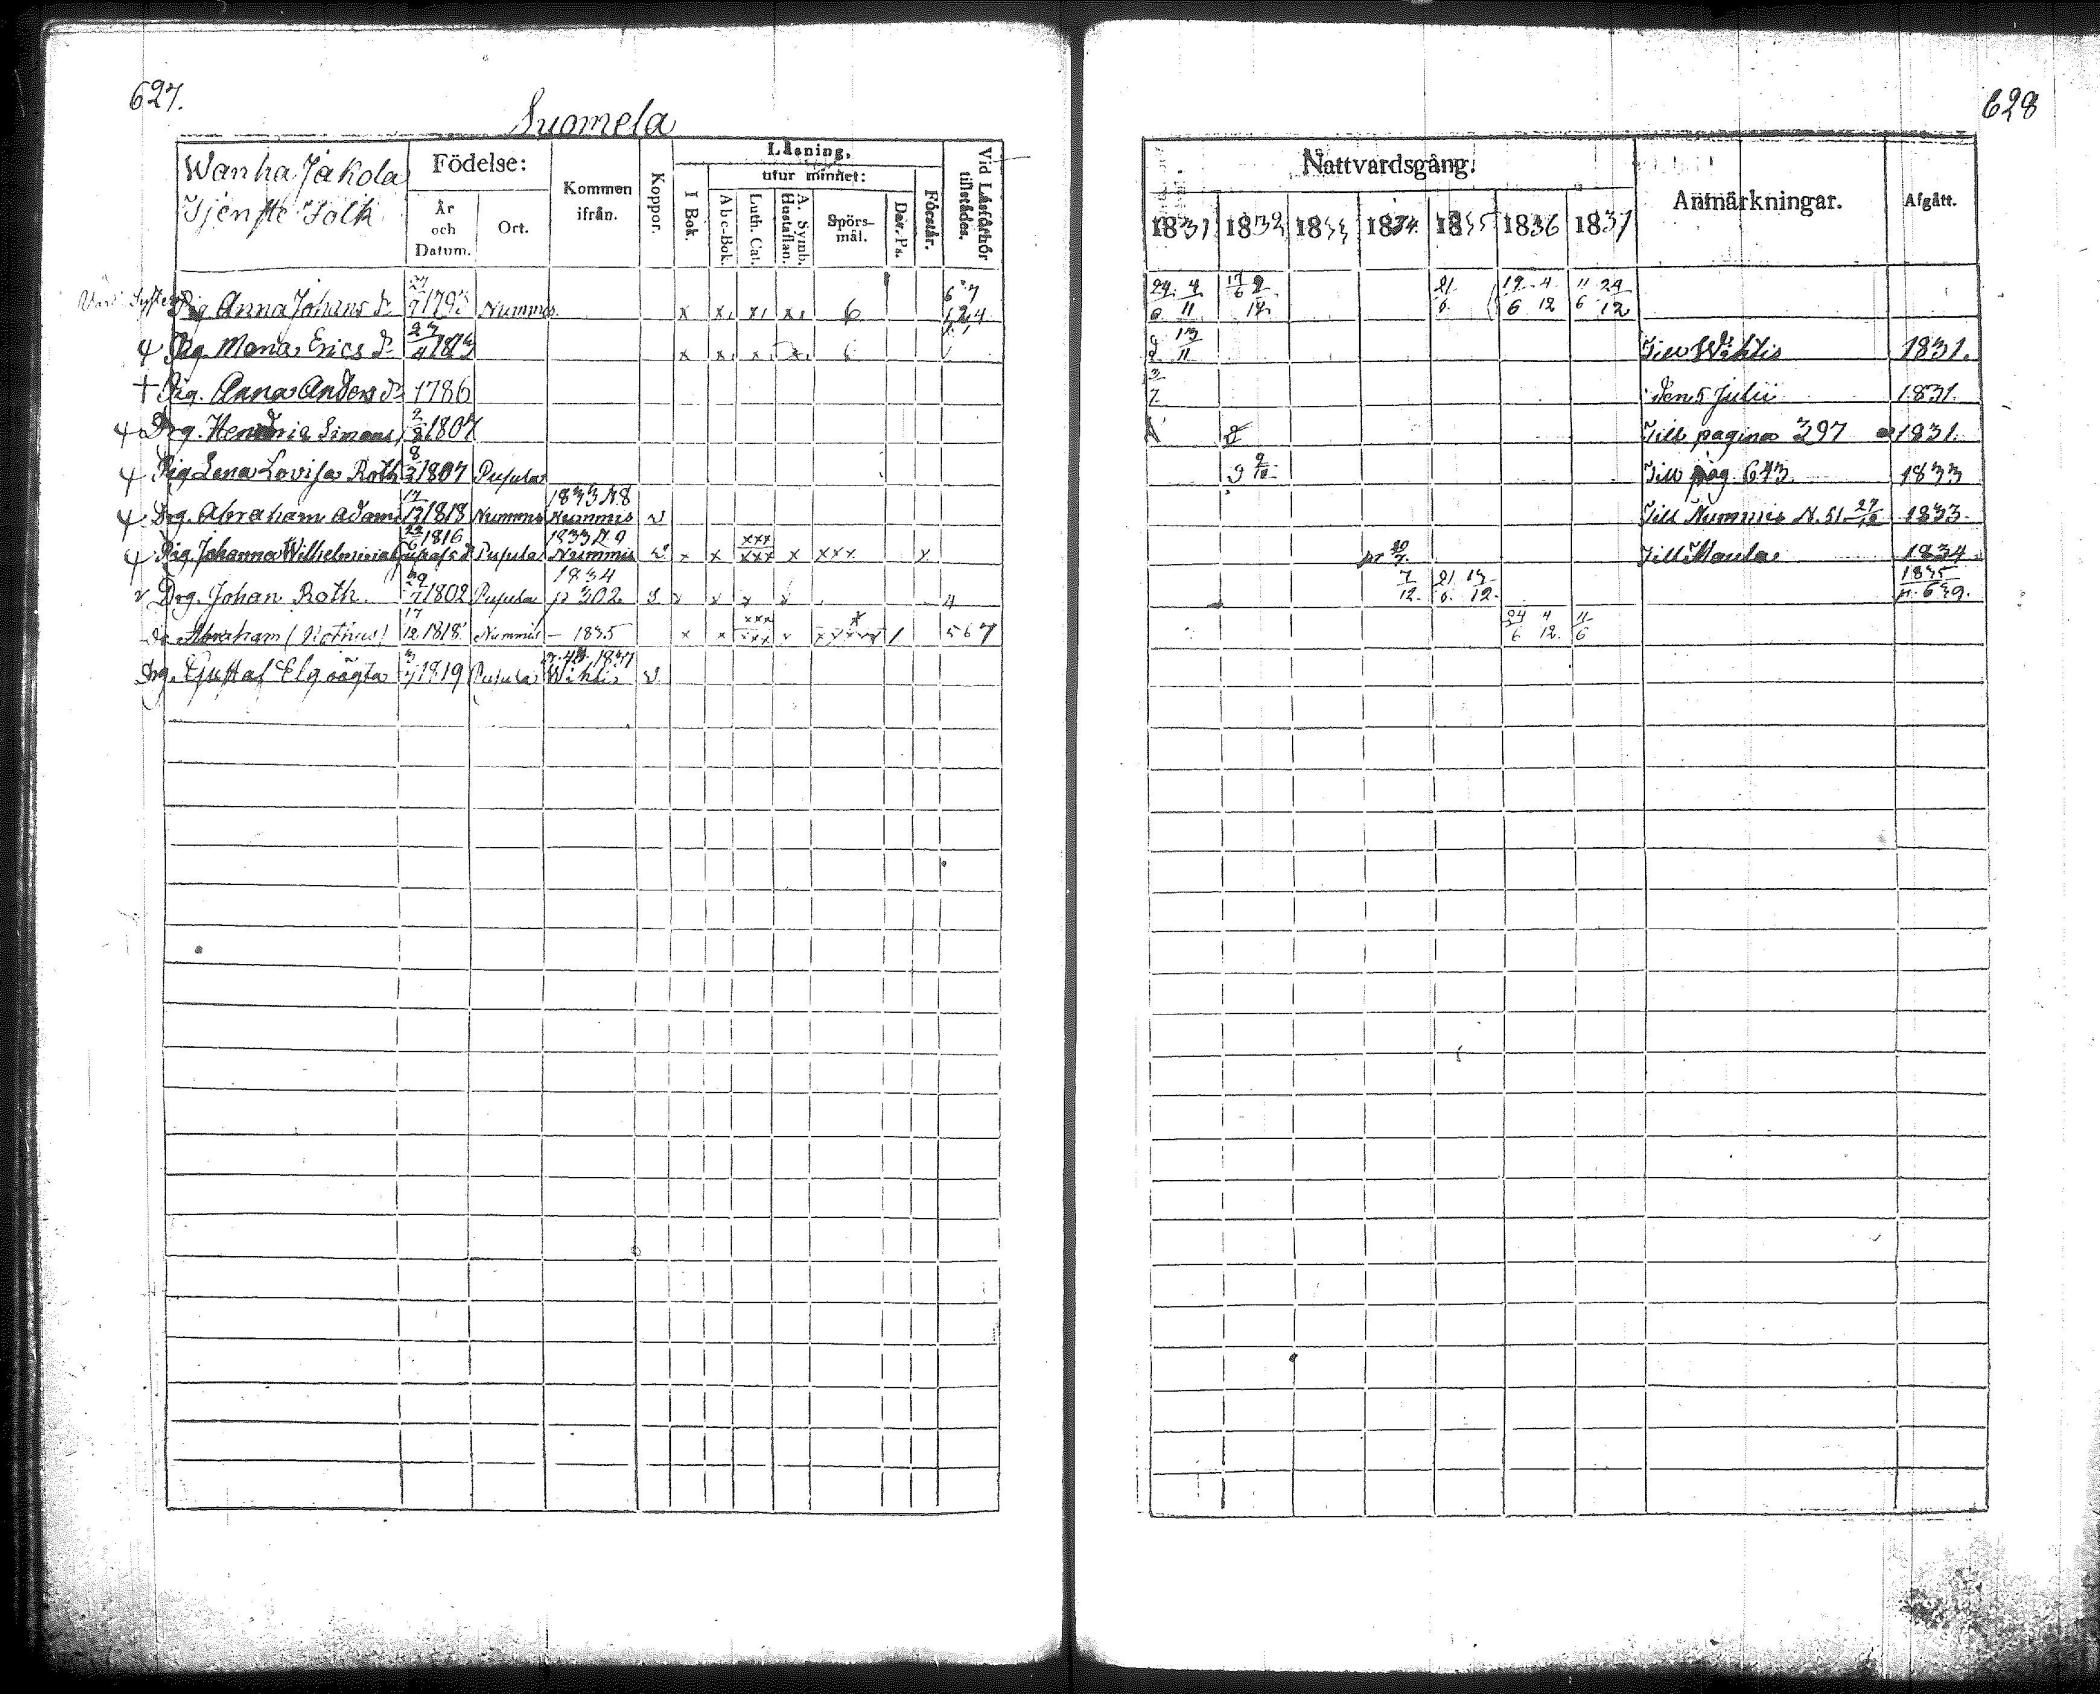 627.
Suomela
Wanha Jakola
Tjenste Folk
Födelse:
År
och
Datum.
Ort.
Kommen
ifrån.
Koppor.
Läsning.
I Bok.
utur minnet:
Abc-Bok.
Luth. Cat.
A. Symb.
Hustaflan.
Spörs-
mål.
Dav. Ps.
Förstår.
Vid Läsförhör
tillstädes.
Pig. Anna Johans dr Nummis x x x x 6
Pig. Mona Erics dr x x x x
+ Pig. Anna Anders dr 1786
Drg. Hendric Simons 2/8 1807
Pig Lena Lovisa Roth 8/3 1807 Pusula
Drg. Abraham Adams 17/12 1818 Nummis Nummis v
Pig. Johanna Wilhelmina 22/6 1816 Pusula Nummis v x x xxx xxx x xxx x
Drg. Johan Roth 1802 Pusula 1834 p 302
do Abraham (Rothus) 17/12 1818 Nummis – 1835 x x xxx xxx 567
Drg. Gustaf Elg 1819 Pusula 1837 Wihtis v
628
Nattvardsgång.
Anmärkningar.
Afgått.
1831 1832 1833 1834 1835 1836 1837
29/6 4/11 17/6 9/12 21/6 19/6 4/12 11/6 24/12
13/11 Till Wihtis 1831.
3/7 Den 5 Julii 1831.
Till pagina 397 1831.
Till pag. 643 1833
Till Nummis N. 51 27/12 1833
Till Maula 1834
7/12 21/6 13/12 1835 p. 639.
24/6 4/12 11/6